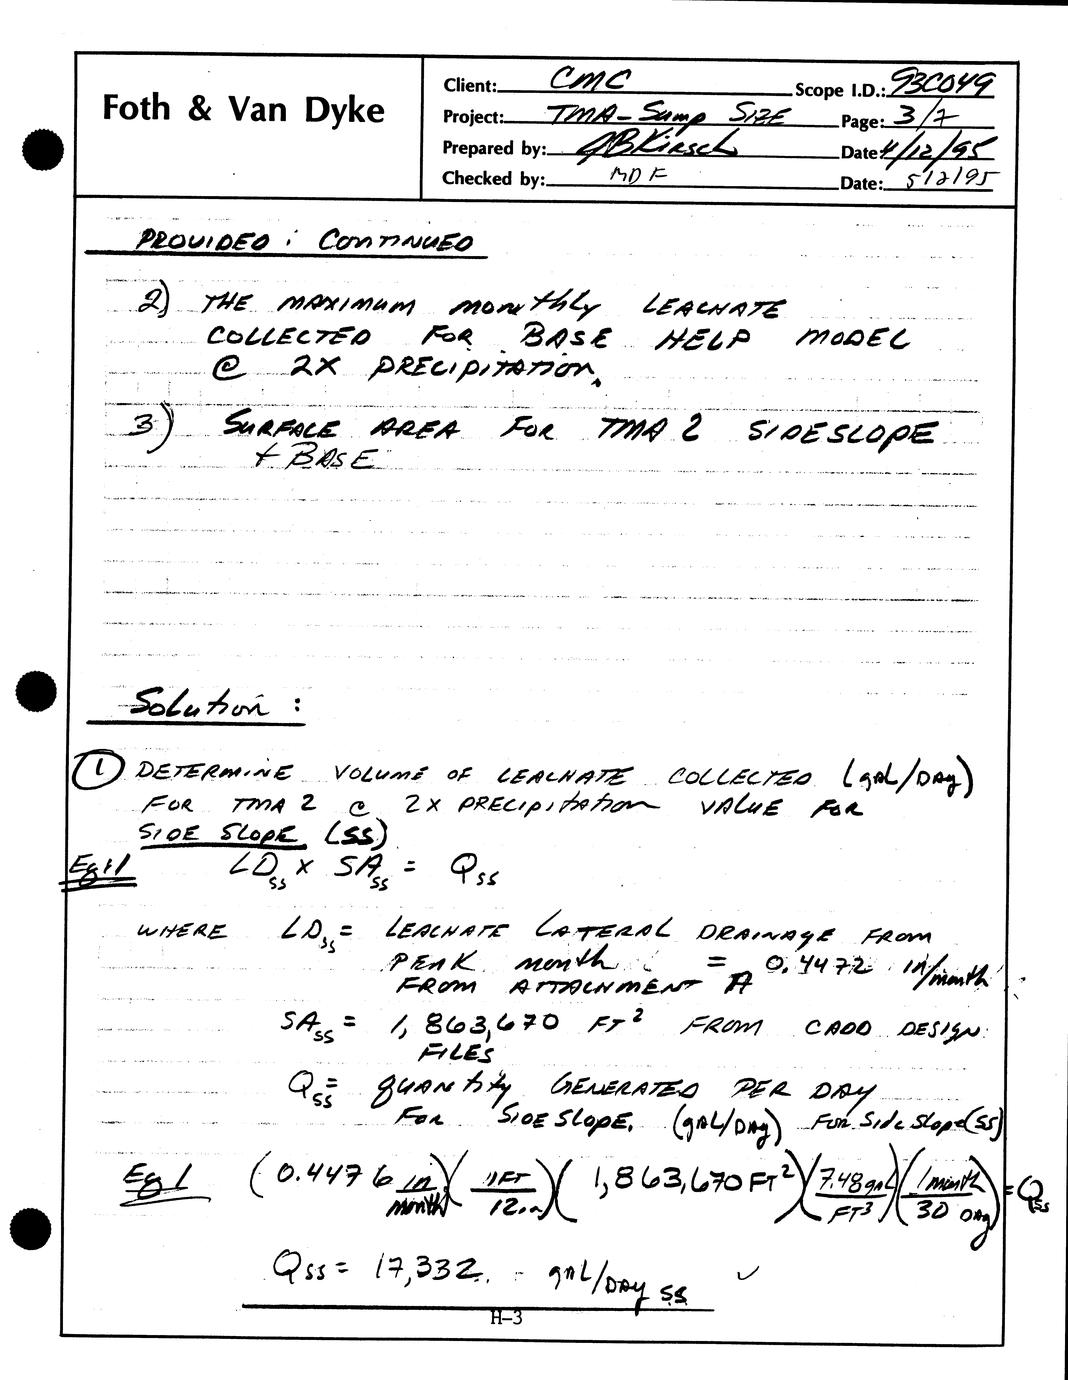 Foth & Van Dyke
Client: CMC Scope I.D.: 93C049
Project: TMA - Sump SIZE Page: 3/7
Prepared by: JBKirsch Date 4/12/95
Checked by: MDF Date: 5/2/95
PROVIDED : CONTINUED
2) THE MAXIMUM monthly LEACHATE
COLLECTED FOR BASE HELP MODEL
@ 2X PRECIPITATION.
3) SURFACE AREA FOR TMA 2 SIDESLOPE
+ BASE
Solution :
① DETERMINE VOLUME OF LEACHATE COLLECTED (gAL/DAy)
FOR TMA 2 @ 2X PRECIPITATION VALUE FOR
SIDE SLOPE (SS)
Eq#1 LDss X SAss = Qss
WHERE LDss = LEACHATE LATERAL DRAINAGE FROM
PEAK month = 0.4472 in/month
FROM ATTACHMENT A
SAss = 1,863,670 FT² FROM CADD DESIGN
FILES
Qss = quANtity GENERATED PER DAY
FOR SIDESLOPE. (gAL/DAy) FOR Side Slope (SS)
Eq 1 (0.4476 in/month)(1FT/12in)(1,863,670 FT²)(7.48 gAL/FT³)(1 month/30 DAy) = Qss
Qss = 17,332. gAL/DAY SS ✓
H-3